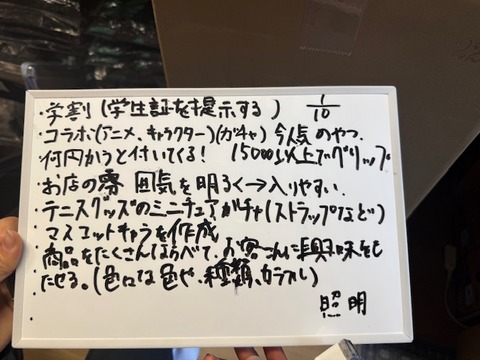 ・学割(学生証を提示する) 1/10
・コラボ(アニメ、キャラクター)(ガチャ) 今人気のやつ、
・何円かうと付いてくる! 15000以上でグリップ
・お店の雰囲気を明るく→入りやすい、
・テニスグッズのミニチュアガチャ(ストラップなど)
・マスコットキャラを作成
・商品をたくさんならべて、お客さんに興味をも
たせる。(色々な色や、種類、カラフル)
・ 照明